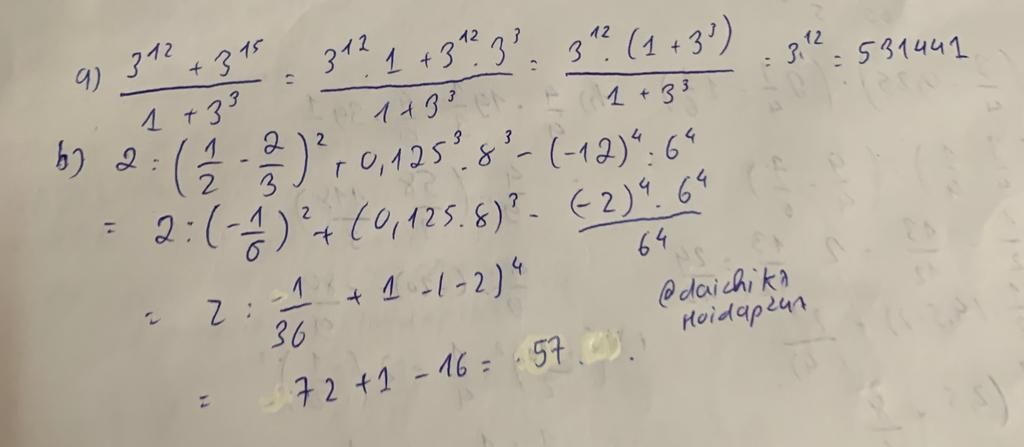 a) \frac{3^{12} + 3^{15}}{1 + 3^3} = \frac{3^{12} . 1 + 3^{12} . 3^3}{1 + 3^3} = \frac{3^{12} . (1 + 3^3)}{1 + 3^3} = 3^{12} = 531441
b) 2 : (\frac{1}{2} - \frac{2}{3})^2 + 0,125^3 . 8^3 - (-12)^4 : 6^4
= 2 : (-\frac{1}{6})^2 + (0,125 . 8)^3 - \frac{(-2)^4 . 6^4}{6^4}
= 2 : \frac{1}{36} + 1 - (-2)^4
@daichik7
Hoidap247
= 72 + 1 - 16 = 57